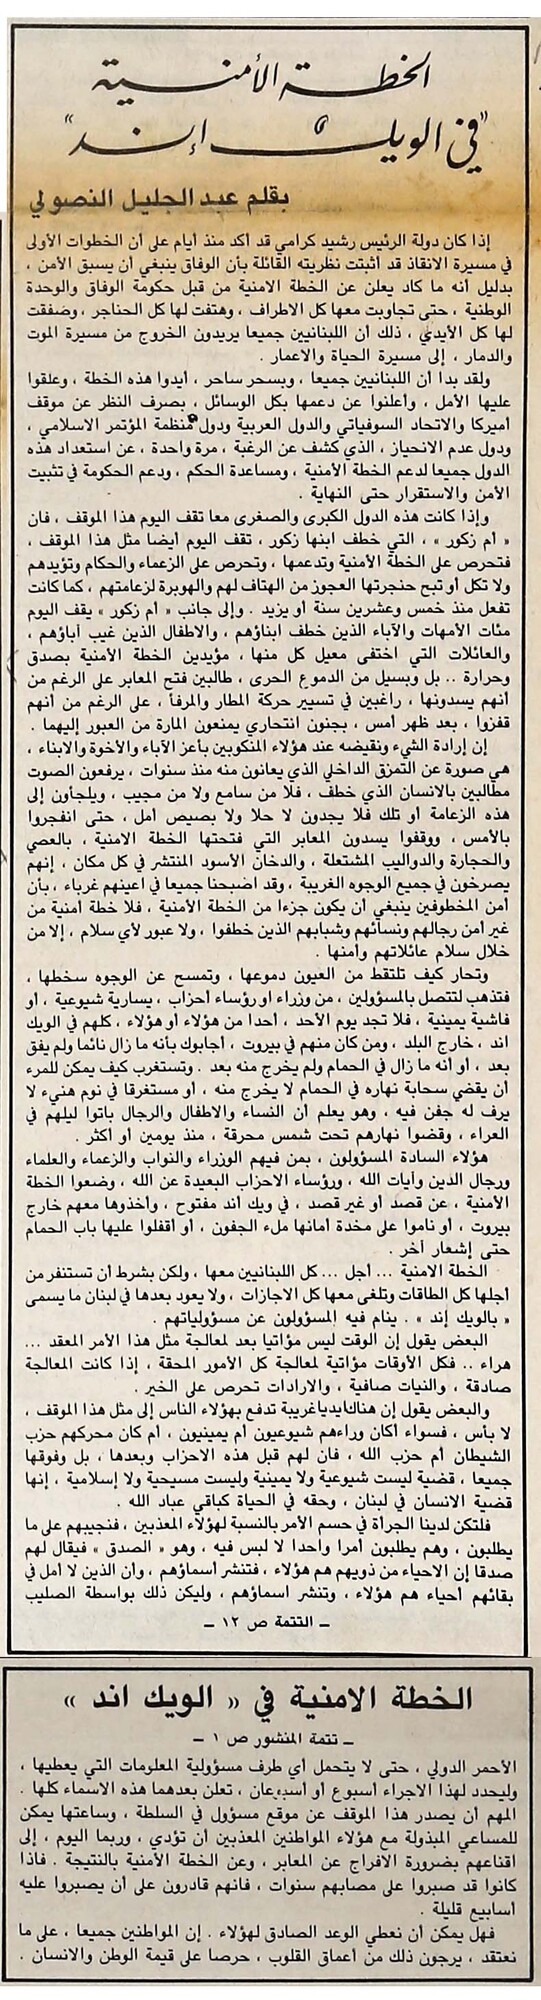 الخطة الأمنية
"في الويك إند"
بقلم عبد الجليل النصولي
إذا كان دولة الرئيس رشيد كرامي قد أكد منذ أيام على أن الخطوات الأولى
في مسيرة الانقاذ قد أثبتت نظريته القائلة بأن الوفاق ينبغي أن يسبق الأمن ،
بدليل أنه ما كاد يعلن عن الخطة الامنية من قبل حكومة الوفاق والوحدة
الوطنية ، حتى تجاوبت معها كل الاطراف ، وهتفت لها كل الحناجر ، وصفقت
لها كل الأيدي ، ذلك أن اللبنانيين جميعا يريدون الخروج من مسيرة الموت
والدمار ، إلى مسيرة الحياة والاعمار .
ولقد بدا أن اللبنانيين جميعا ، وبسحر ساحر ، أيدوا هذه الخطة ، وعلقوا
عليها الأمل ، وأعلنوا عن دعمها بكل الوسائل ، بصرف النظر عن موقف
أميركا والاتحاد السوفياتي والدول العربية ودول منظمة المؤتمر الاسلامي ،
ودول عدم الانحياز ، الذي كشف عن الرغبة ، مرة واحدة ، عن استعداد هذه
الدول جميعا لدعم الخطة الأمنية ، ومساعدة الحكم ، ودعم الحكومة في تثبيت
الأمن والاستقرار حتى النهاية .
وإذا كانت هذه الدول الكبرى والصغرى معا تقف اليوم هذا الموقف ، فان
« أم زكور » ، التي خطف ابنها زكور ، تقف اليوم أيضا مثل هذا الموقف ،
فتحرص على الخطة الأمنية وتدعمها ، وتحرص على الزعماء والحكام وتؤيدهم
ولا تكل أو تبح حنجرتها العجوز من الهتاف لهم والهوبرة لزعامتهم ، كما كانت
تفعل منذ خمس وعشرين سنة أو يزيد . وإلى جانب « أم زكور » يقف اليوم
مئات الأمهات والآباء الذين خطف ابناؤهم ، والاطفال الذين غيب آباؤهم ،
والعائلات التي اختفى معيل كل منها ، مؤيدين الخطة الأمنية بصدق
وحرارة .. بل وبسيل من الدموع الحرى ، طالبين فتح المعابر على الرغم من
أنهم يسدونها ، راغبين في تسيير حركة المطار والمرفأ ، على الرغم من أنهم
قفزوا ، بعد ظهر أمس ، بجنون انتحاري يمنعون المارة من العبور إليهما .
إن إرادة الشيء ونقيضه عند هؤلاء المنكوبين بأعز الآباء والأخوة والابناء ،
هي صورة عن التمزق الداخلي الذي يعانون منه منذ سنوات ، يرفعون الصوت
مطالبين بالانسان الذي خطف ، فلا من سامع ولا من مجيب ، ويلجأون إلى
هذه الزعامة أو تلك فلا يجدون لا حلا ولا بصيص أمل ، حتى انفجروا
بالأمس ، ووقفوا يسدون المعابر التي فتحتها الخطة الامنية ، بالعصي
والحجارة والدواليب المشتعلة ، والدخان الأسود المنتشر في كل مكان ، إنهم
يصرخون في جميع الوجوه الغريبة ، وقد اضبحنا جميعا في اعينهم غرباء ، بأن
أمن المخطوفين ينبغي أن يكون جزءا من الخطة الأمنية ، فلا خطة أمنية من
غير أمن رجالهم ونسائهم وشبابهم الذين خطفوا ، ولا عبور لأي سلام ، إلا من
خلال سلام عائلاتهم وأمنها .
وتحار كيف تلتقط من العيون دموعها ، وتمسح عن الوجوه سخطها ،
فتذهب لتتصل بالمسؤولين ، من وزراء او رؤساء أحزاب ، يسارية شيوعية ، أو
فاشية يمينية ، فلا تجد يوم الأحد ، أحدا من هؤلاء أو هؤلاء ، كلهم في الويك
اند ، خارج البلد ، ومن كان منهم في بيروت ، أجابوك بأنه ما زال نائما ولم يفق
بعد ، أو أنه ما زال في الحمام ولم يخرج منه بعد . وتستغرب كيف يمكن للمرء
أن يقضي سحابة نهاره في الحمام لا يخرج منه ، أو مستغرقا في نوم هنيء لا
يرف له جفن فيه ، وهو يعلم أن النساء والاطفال والرجال باتوا ليلهم في
العراء ، وقضوا نهارهم تحت شمس محرقة ، منذ يومين أو أكثر .
هؤلاء السادة المسؤولون ، بمن فيهم الوزراء والنواب والزعماء والعلماء
ورجال الدين وآيات الله ، ورؤساء الاحزاب البعيدة عن الله ، وضعوا الخطة
الأمنية ، عن قصد أو غير قصد ، في ويك أند مفتوح ، وأخذوها معهم خارج
بيروت ، أو ناموا على مخدة أمانها ملء الجفون ، أو أقفلوا عليها باب الحمام
حتى إشعار آخر .
الخطة الامنية ... أجل ... كل اللبنانيين معها ، ولكن بشرط أن تستنفر من
أجلها كل الطاقات وتلغى معها كل الاجازات ، ولا يعود بعدها في لبنان ما يسمى
« بالويك إند » . ينام فيه المسؤولون عن مسؤولياتهم .
البعض يقول إن الوقت ليس مؤاتيا بعد لمعالجة مثل هذا الأمر المعقد ...
هراء .. فكل الأوقات مؤاتية لمعالجة كل الأمور المحقة ، إذا كانت المعالجة
صادقة ، والنيات صافية ، والارادات تحرص على الخير .
والبعض يقول إن هناك أيديا غريبة تدفع بهؤلاء الناس إلى مثل هذا الموقف ،
لا بأس ، فسواء أكان وراءهم شيوعيون أم يمينيون ، أم كان محركهم حزب
الشيطان أم حزب الله ، فان لهم قبل هذه الاحزاب وبعدها ، بل وفوقها
جميعا ، قضية ليست شيوعية ولا يمينية وليست مسيحية ولا إسلامية ، إنها
قضية الانسان في لبنان ، وحقه في الحياة كباقي عباد الله .
فلتكن لدينا الجرأة في حسم الأمر بالنسبة لهؤلاء المعذبين ، فنجيبهم على ما
يطلبون ، وهم يطلبون أمرا واحدا لا لبس فيه ، وهو « الصدق » فيقال لهم
صدقا إن الاحياء من ذويهم هم هؤلاء ، فتنشر أسماؤهم ، وأن الذين لا أمل في
بقائهم أحياء هم هؤلاء ، وتنشر اسماؤهم ، وليكن ذلك بواسطة الصليب
ـ التتمة ص ١٢ ـ
الخطة الامنية في « الويك اند »
ـ تتمة المنشور ص ١ ـ
الأحمر الدولي ، حتى لا يتحمل أي طرف مسؤولية المعلومات التي يعطيها ،
وليحدد لهذا الاجراء أسبوع أو أسبوعان ، تعلن بعدهما هذه الاسماء كلها .
المهم أن يصدر هذا الموقف عن موقع مسؤول في السلطة ، وساعتها يمكن
للمساعي المبذولة مع هؤلاء المواطنين المعذبين أن تؤدي ، وربما اليوم ، إلى
اقناعهم بضرورة الافراج عن المعابر ، وعن الخطة الأمنية بالنتيجة . فاذا
كانوا قد صبروا على مصابهم سنوات ، فانهم قادرون على أن يصبروا عليه
أسابيع قليلة .
فهل يمكن أن نعطي الوعد الصادق لهؤلاء . إن المواطنين جميعا ، على ما
نعتقد ، يرجون ذلك من أعماق القلوب ، حرصا على قيمة الوطن والانسان .